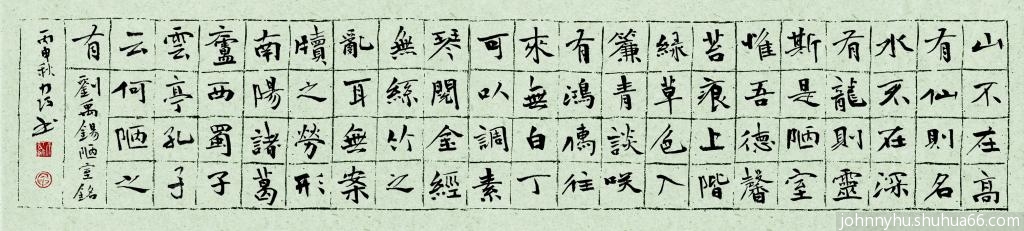 山不在高
有仙則名
水不在深
有龍則靈
斯是陋室
惟吾德馨
苔痕上階
緑草色入
簾青談咲
有鴻儒往
來無白丁
可以調素
琴閱金經
無絲竹之
亂耳無案
牘之勞形
南陽諸葛
廬西蜀子
雲亭孔子
云何陋之
有
劉禹錫陋室銘
丙申秋
johnnyhu.shuhua66.com